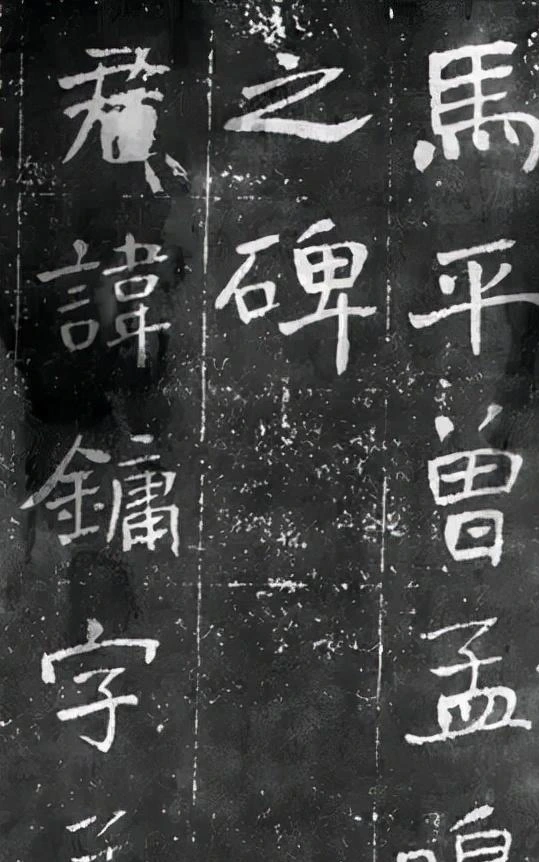 馬平曾孟
之碑
君諱鏞字